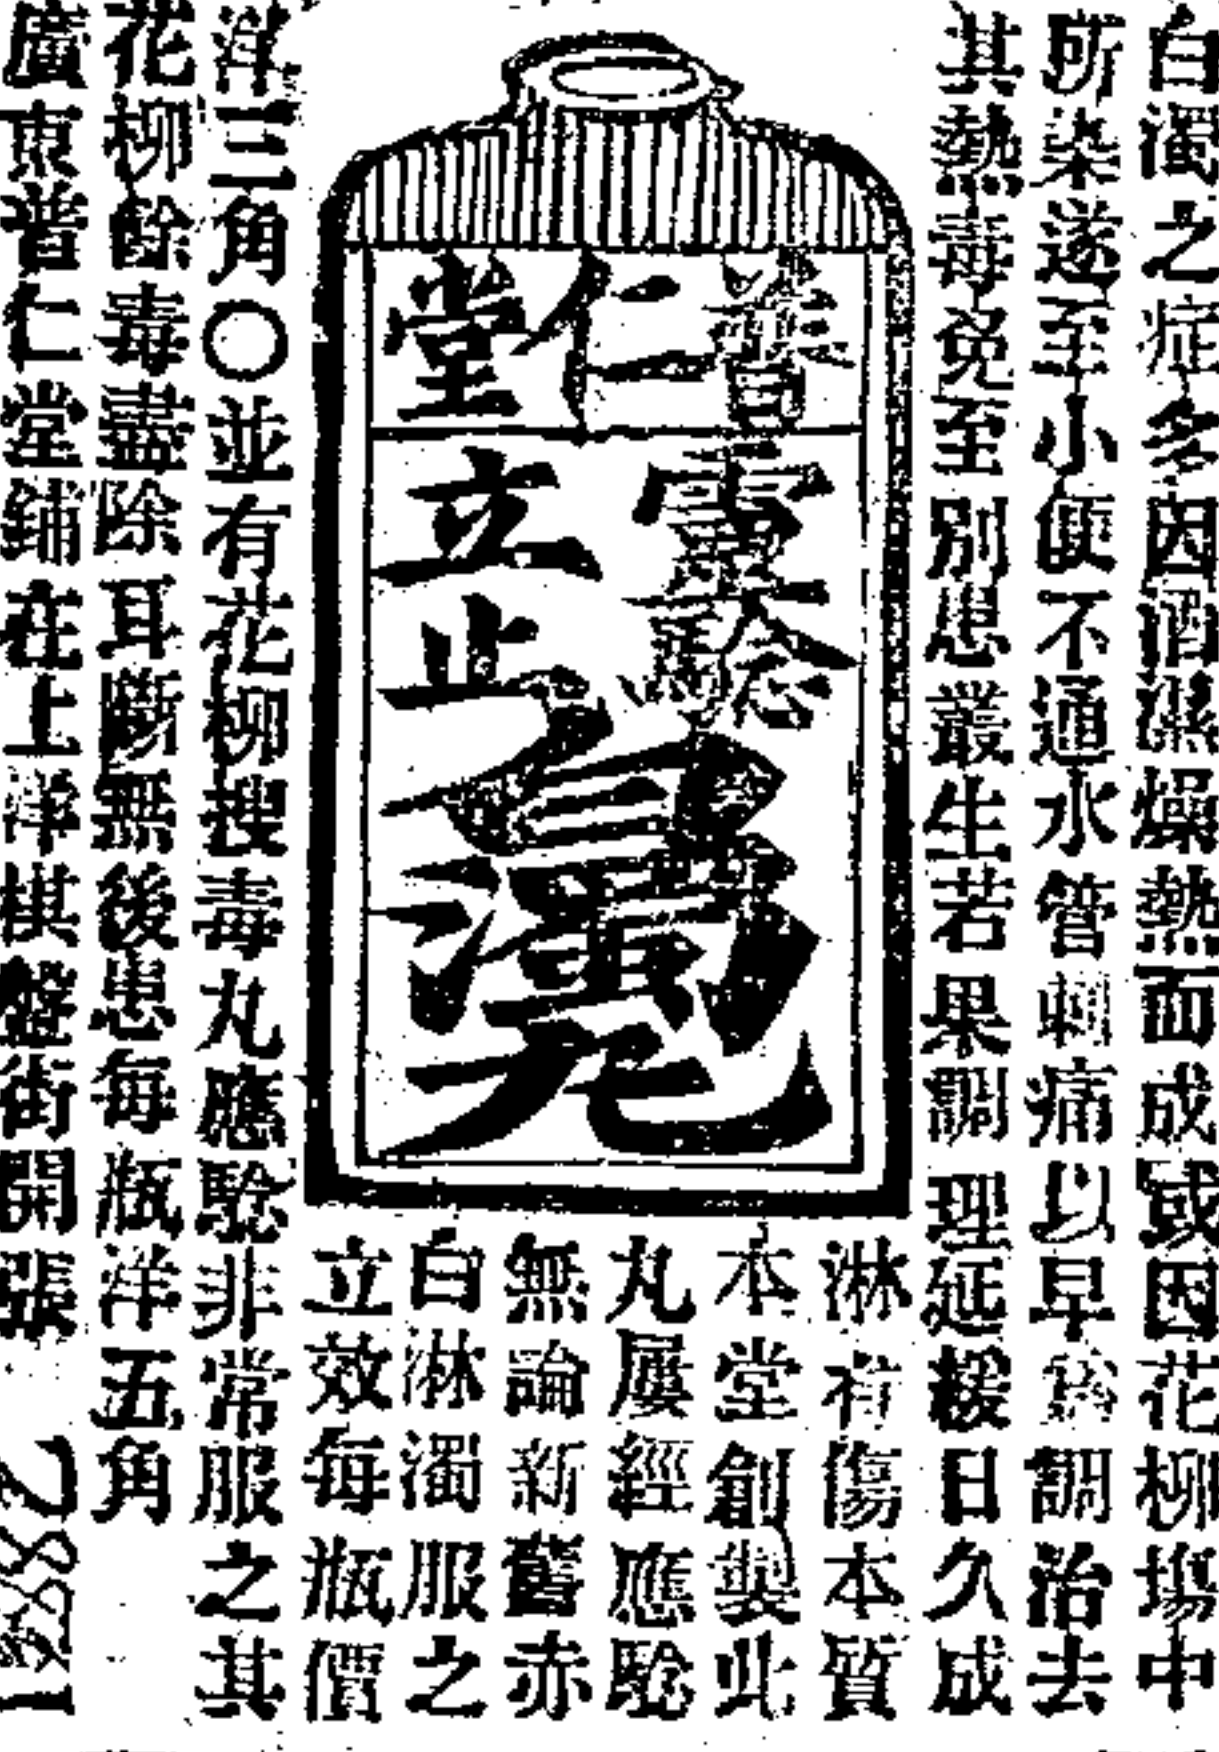 白濁之症多因酒濕燥熱而成或因花柳塲中
所染遂至小便不通水管刺痛以早爲調治去
其熱毒免至別患叢生若果調理延緩日久成
淋有傷本質
本堂創製此
丸屢經應騐
無論新舊赤
白淋濁服之
立效每瓶價
普仁堂
靈騐
立止
白濁丸
洋三角〇並有花柳搜毒丸應騐非常服之其
花柳餘毒盡除耳斷無後患每瓶洋五角
廣東普仁堂鋪在上洋棋盤街開張